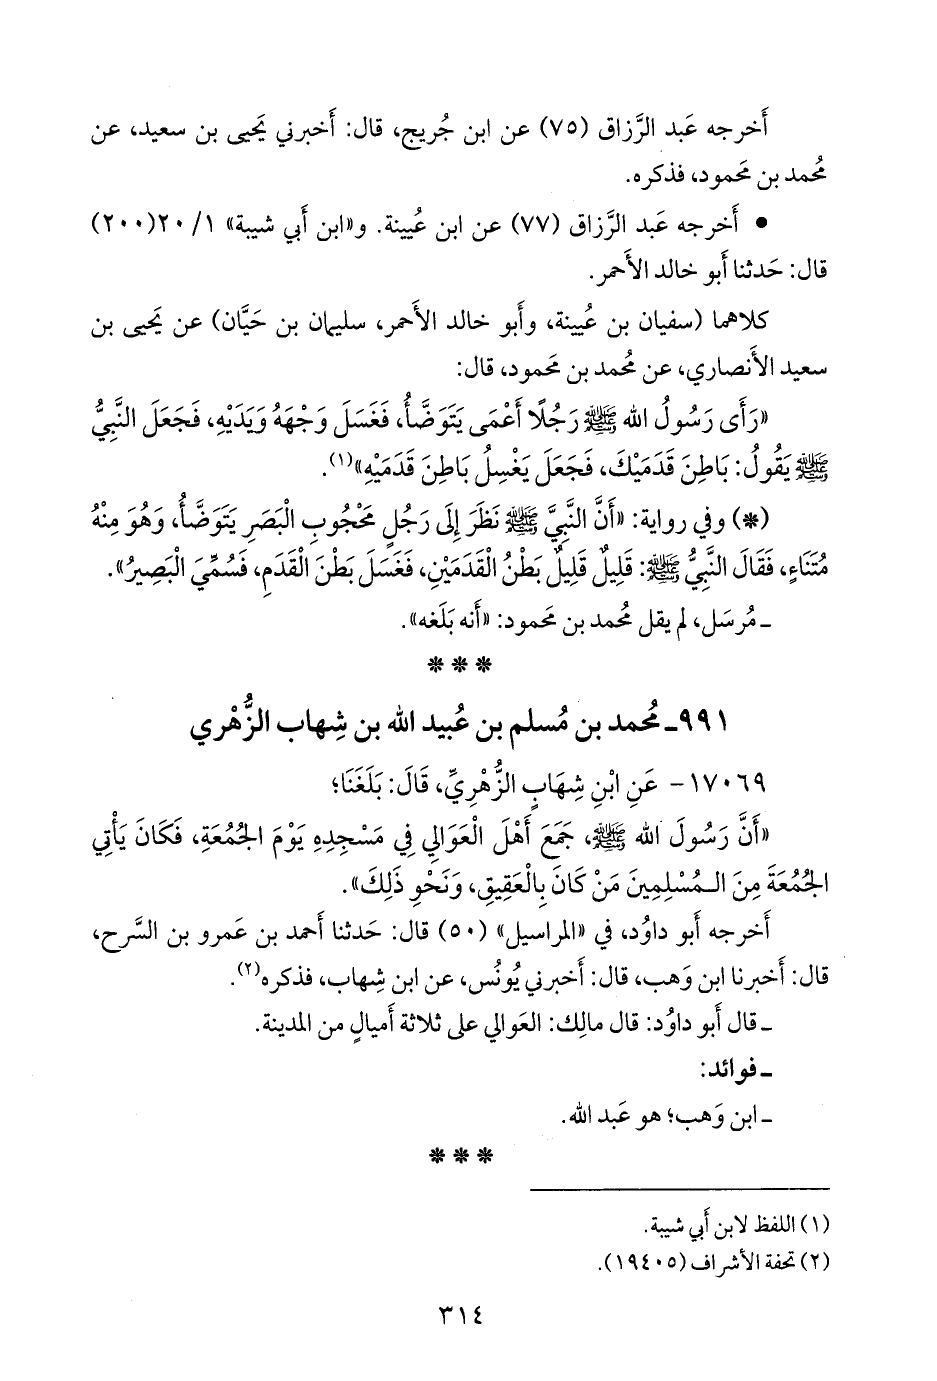 أَخرجه عَبد الرَّزاق (٧٥) عن ابن جُريج، قال: أَخبرني يَحيى بن سعيد، عن
مُحمد بن مَحمود، فذكره.
• أَخرجه عَبد الرَّزاق (٧٧) عن ابن عُيينة. و«ابن أَبي شيبة» ١/ ٢٠(٢٠٠)
قال: حَدثنا أَبو خالد الأَحمر.
كلاهما (سفيان بن عُيينة، وأَبو خالد الأَحمر، سليمان بن حَيَّان) عن يَحيى بن
سعيد الأَنصاري، عن مُحمد بن مَحمود، قال:
«رَأَى رَسُولُ الله ﷺ رَجُلًا أَعْمَى يَتَوَضَّأُ، فَغَسَلَ وَجْهَهُ وَيَدَيْهِ، فَجَعَلَ النَّبِيُّ
ﷺ يَقُولُ: بَاطِنَ قَدَمَيْكَ، فَجَعَلَ يَغْسِلُ بَاطِنَ قَدَمَيْهِ»(١).
(*) وفي رواية: «أَنَّ النَّبِيَّ ﷺ نَظَرَ إِلَى رَجُلٍ مَحْجُوبِ الْبَصَرِ يَتَوَضَّأُ، وَهُوَ مِنْهُ
مُتَنَاءٍ، فَقَالَ النَّبِيُّ ﷺ: قَلِيلٌ قَلِيلٌ بَطْنُ الْقَدَمَيْنِ، فَغَسَلَ بَطْنَ الْقَدَمِ، فَسُمِّيَ الْبَصِيرُ».
ـ مُرسَل، لم يقل مُحمد بن مَحمود: «أَنه بَلَغه».
* * *
٩٩١ـ مُحمد بن مُسلم بن عُبيد الله بن شِهاب الزُّهْري
١٧٠٦٩- عَنِ ابْنِ شِهَابٍ الزُّهْرِيِّ، قَالَ: بَلَغَنَا؛
«أَنَّ رَسُولَ الله ﷺ، جَمَعَ أَهْلَ الْعَوَالِي فِي مَسْجِدِهِ يَوْمَ الْجُمُعَةِ، فَكَانَ يَأْتِي
الْجُمُعَةَ مِنَ الـمُسْلِمِينَ مَنْ كَانَ بِالْعَقِيقِ، وَنَحْوِ ذَلِكَ».
أَخرجه أَبو داوُد، في «المراسيل» (٥٠) قال: حَدثنا أَحمد بن عَمرو بن السَّرح،
قال: أَخبرنا ابن وَهب، قال: أَخبرني يُونُس، عن ابن شِهاب، فذكره(٢).
ـ قال أَبو داوُد: قال مالِك: العَوالي على ثلاثة أَميالٍ من المدينة.
ـ فوائد:
ـ ابن وَهب؛ هو عَبد الله.
* * *
(١) اللفظ لابن أَبي شيبة.
(٢) تحفة الأشراف (١٩٤٠٥).
٣١٤